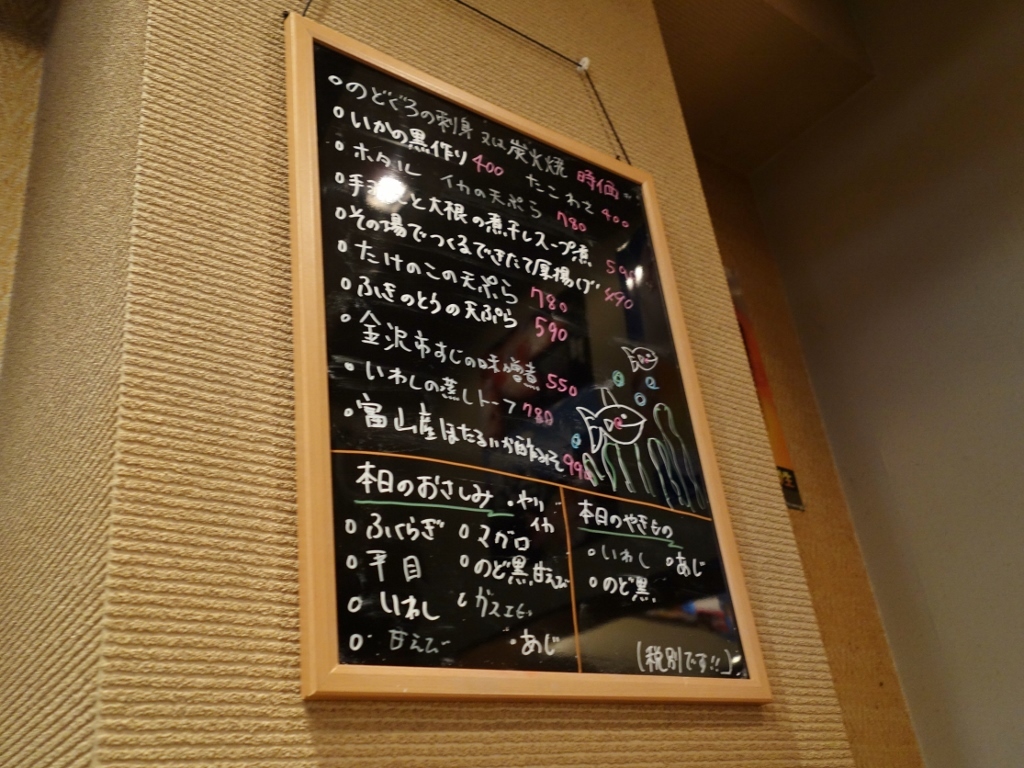 のどぐろの刺身 又は 炭火焼 時価
いかの黒作り 400 たこわさ 400
ホタルイカの天ぷら 780
と大根の煮干しスープ煮 590
その場でつくるできたて厚揚げ 490
たけのこの天ぷら 780
ふきのとうの天ぷら 590
金沢市すじの味噌煮 550
いわしの蒸しトーフ 780
富山産ほたるいか酢みそ 990
本日のおさしみ
・ヤリイカ
ふくらぎ マグロ
平目 のど黒 甘えび
いわし ガスエビ
甘えび ・あじ
本日のやきもの
いわし あじ
のど黒
(税別です!!)